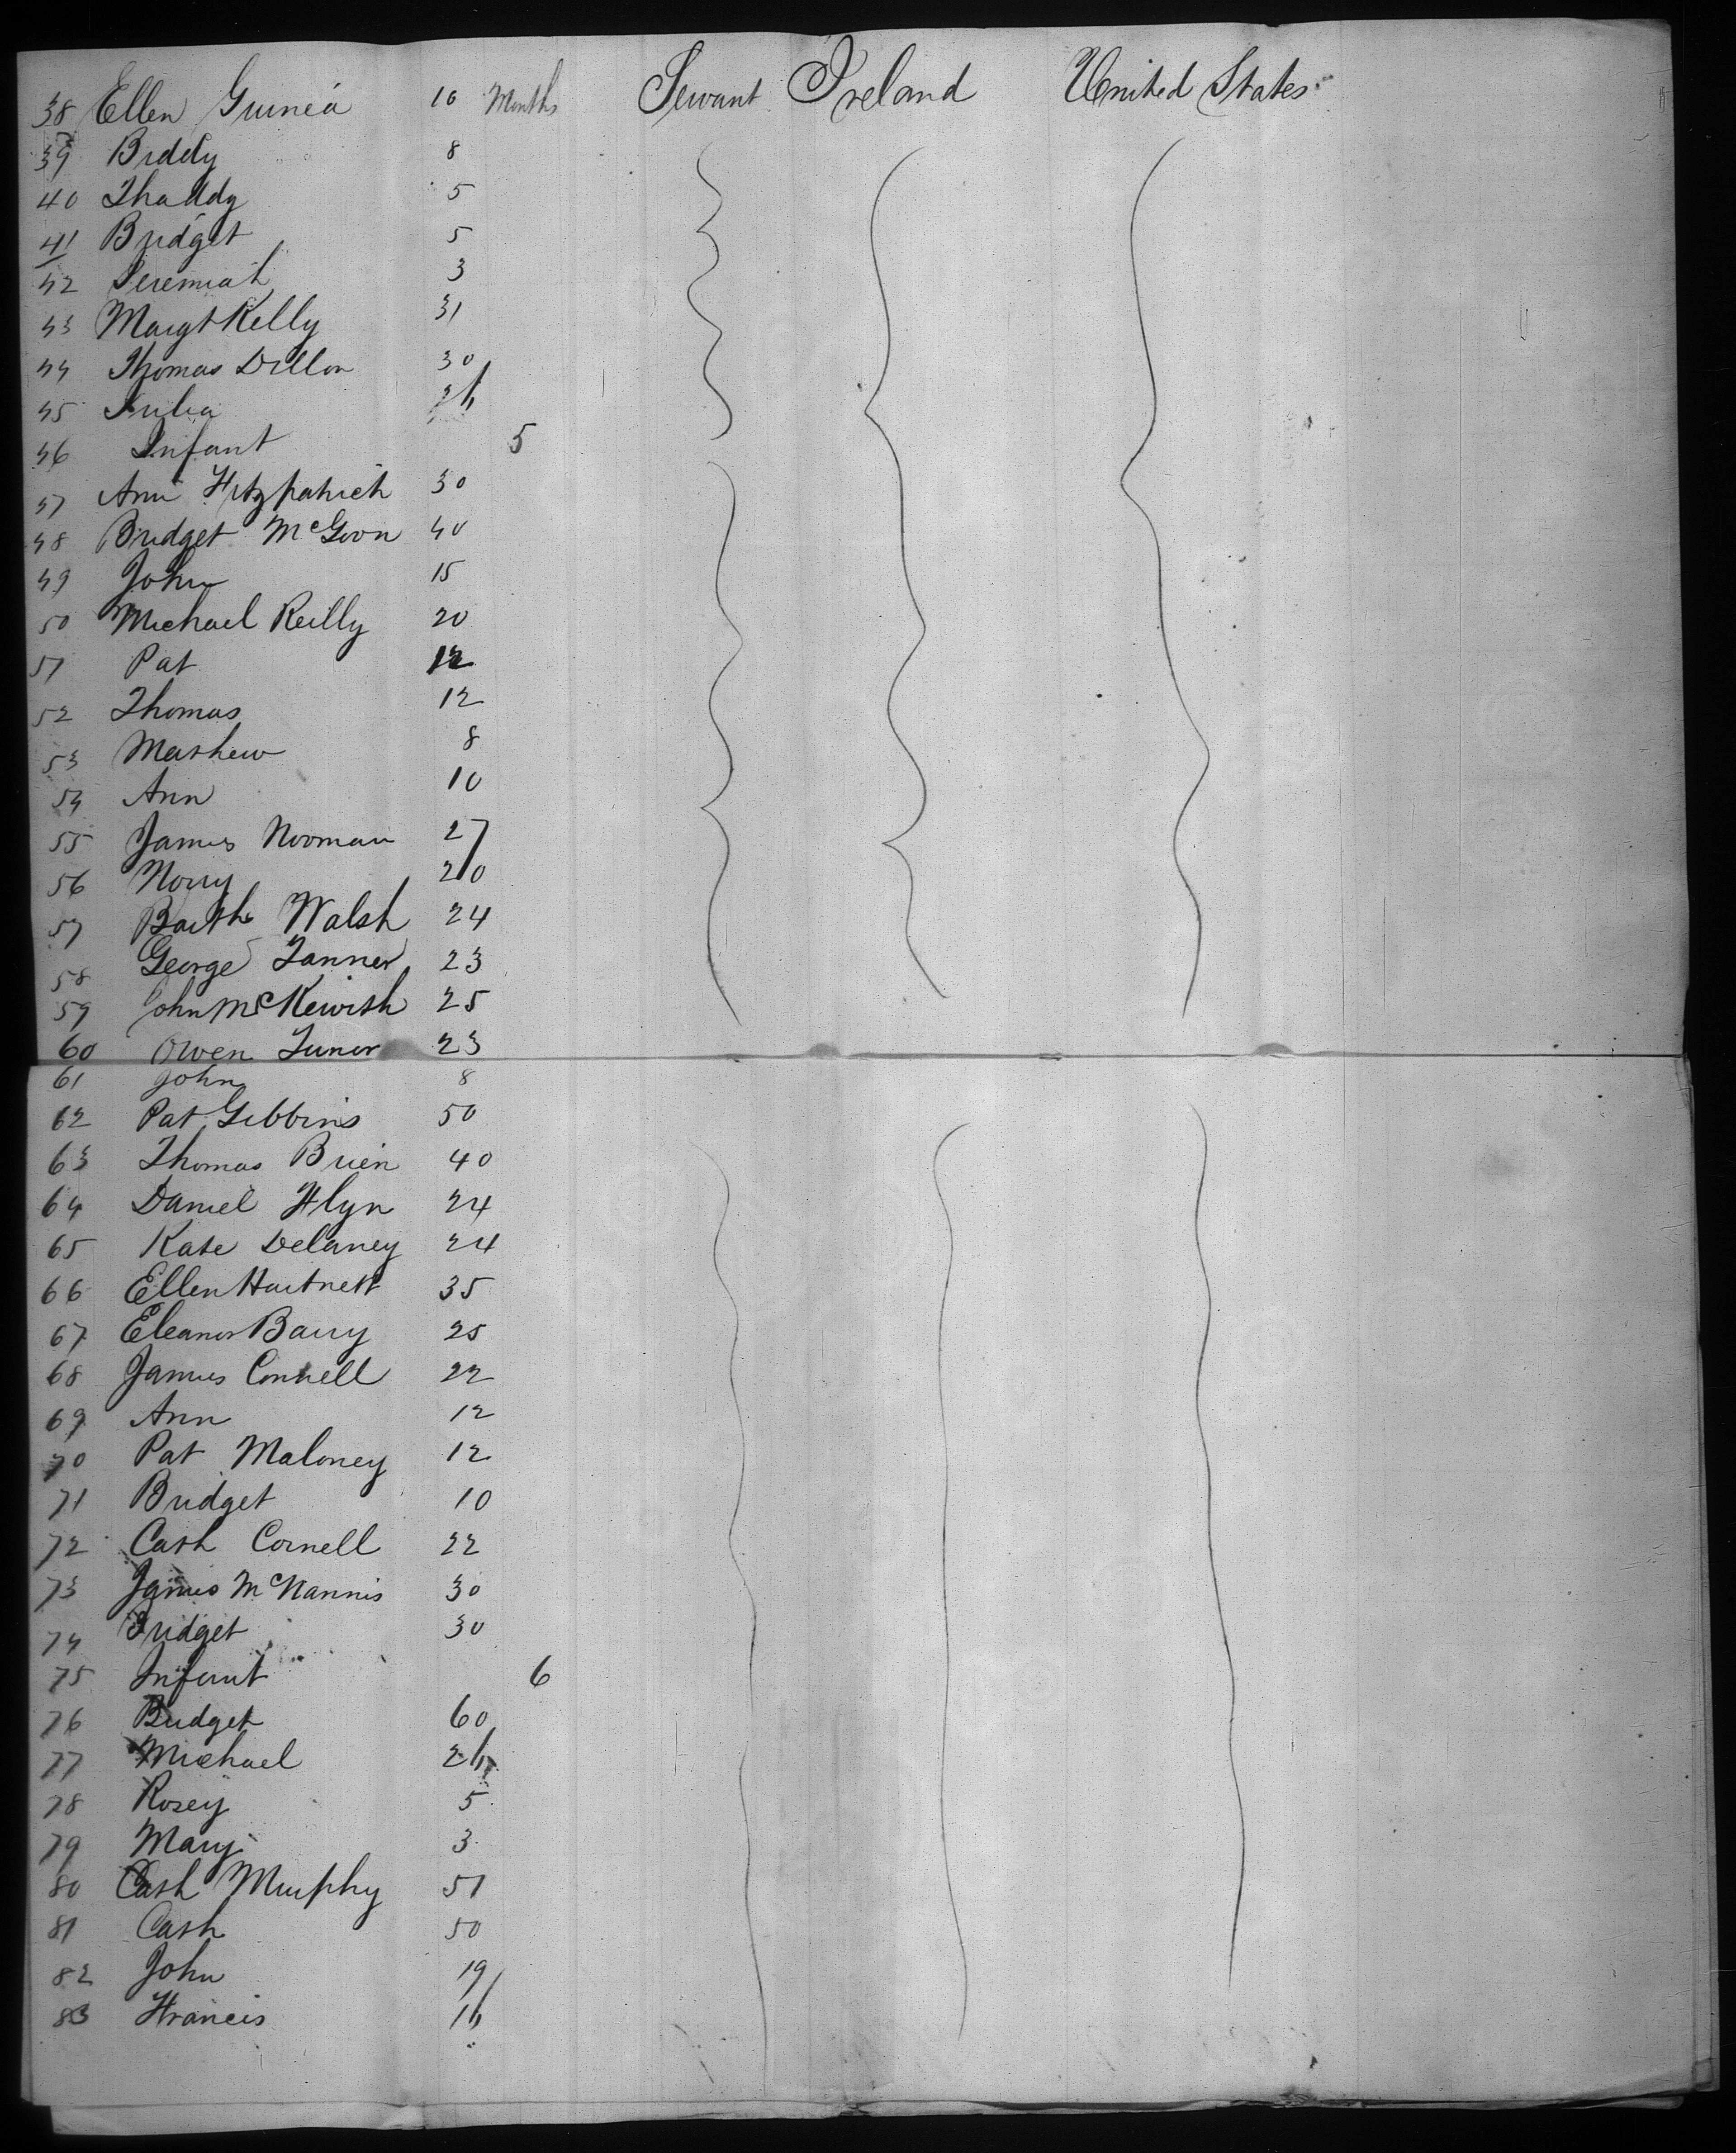 38 Ellen Guinea 10 Months Servant Ireland United States
39 Biddy 8
40 Thaddy 5
41 Bridget 5
42 Jeremiah 3
43 Margt Kelly 31
44 Thomas Dillon 30
45 Julia 26
46 Infant 5
47 Ann Fitzpatrick 30
48 Bridget McGovn 40
49 John 15
50 Michael Reilly 20
51 Pat 12
52 Thomas 12
53 Mathew 8
54 Ann 10
55 James Noonan 27
56 Norry 20
57 Barth Walsh 24
58 George Tanner 23
59 John McKewish 25
60 Owen Tuner 23
61 John 8
62 Pat Gibbins 50
63 Thomas Brien 40
64 Daniel Flyn 24
65 Kate Delaney 24
66 Ellen Hartnett 35
67 Eleanor Barry 25
68 James Connell 22
69 Ann 12
70 Pat Maloney 12
71 Bridget 10
72 Cath Cornell 22
73 James McNannis 30
74 Bridget 30
75 Infant 6
76 Bridget 60
77 Michael 26
78 Rosey 5
79 Mary 3
80 Cath Murphy 51
81 Cath 50
82 John 19
83 Francis 16